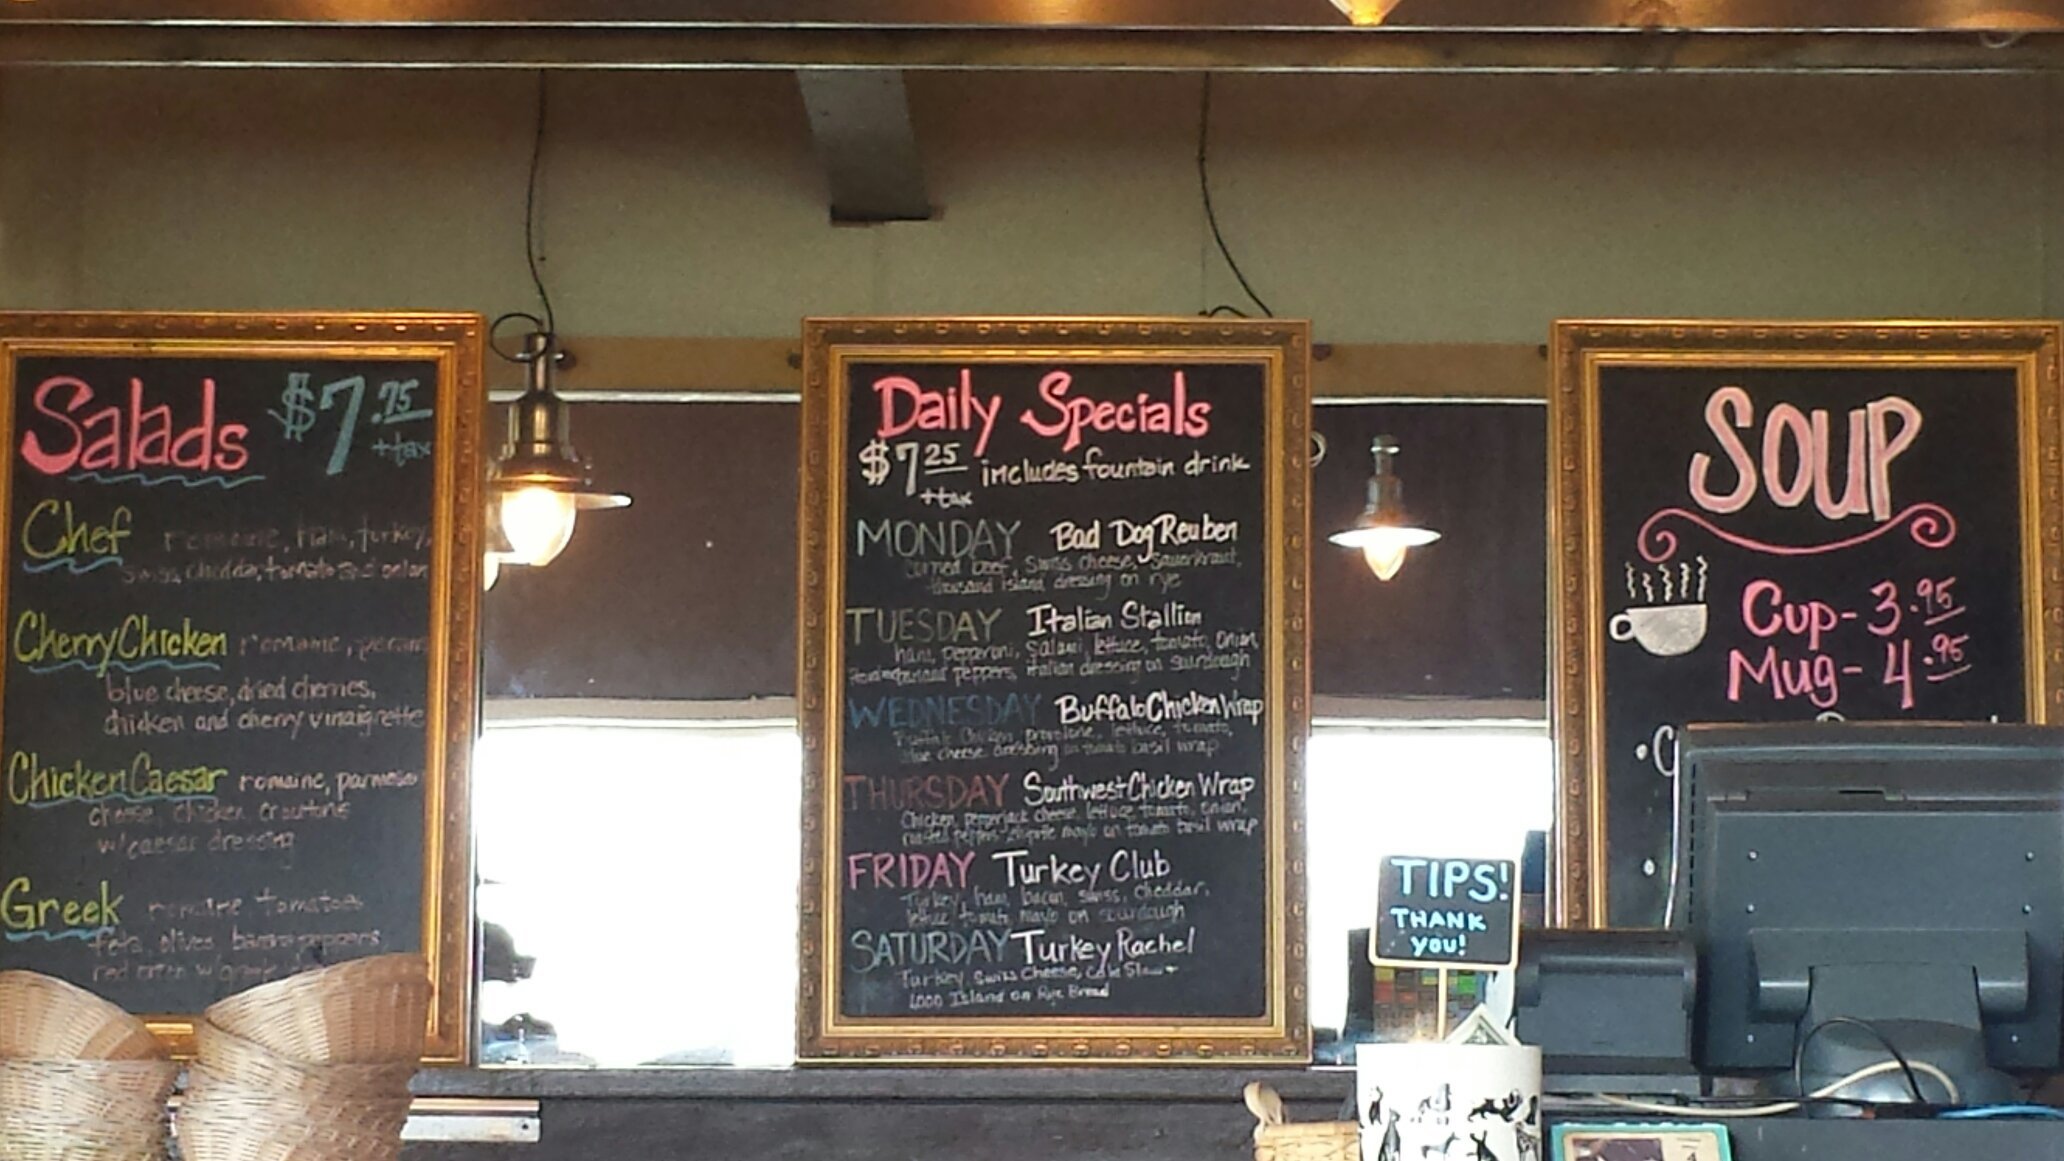 Salads $7.75
+tax
Chef romaine, ham, turkey,
swiss, cheddar, tomato and onion
Cherry Chicken romaine, pecans
blue cheese, dried cherries,
chicken and cherry vinaigrette
Chicken Caesar romaine, parmesa
cheese, chicken croutons
w/caesar dressing
Greek romaine tomatoes
feta, olives banana peppers
red onion w/greek
Daily Specials
$7.25 includes fountain drink
+tax
MONDAY Bad Dog Reuben
corned beef, swiss cheese, sauerkraut,
thousand island dressing on rye
TUESDAY Italian Stallion
ham, pepperoni, salami, lettuce, tomato, onion,
peppers, italian dressing on sourdough
WEDNESDAY Buffalo Chicken Wrap
Buffalo Chicken, provolone, lettuce, tomato,
blue cheese dressing on tomato basil wrap
THURSDAY Southwest Chicken Wrap
Chicken, pepperjack cheese, lettuce tomato, onion,
roasted peppers, chipotle mayo on tomato basil wrap
FRIDAY Turkey Club
Turkey, ham, bacon, swiss, cheddar,
lettuce, tomato, mayo on sourdough
SATURDAY Turkey Rachel
Turkey, Swiss Cheese, Cole Slaw +
1000 Island on Rye Bread
SOUP
Cup- 3.95
Mug- 4.95
TIPS!
THANK
you!